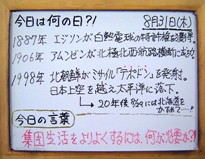 今日は何の日?! 8月31日(木)
1887年 エジソンが
1906年 アムンゼンが北極北西航路横断に成功
1998年 北朝鮮がミサイル「テポドン」を発射。
日本上空を越え太平洋に落下。
20年後
今日の言葉
集団生活をよりよくするには、何が必要か?!